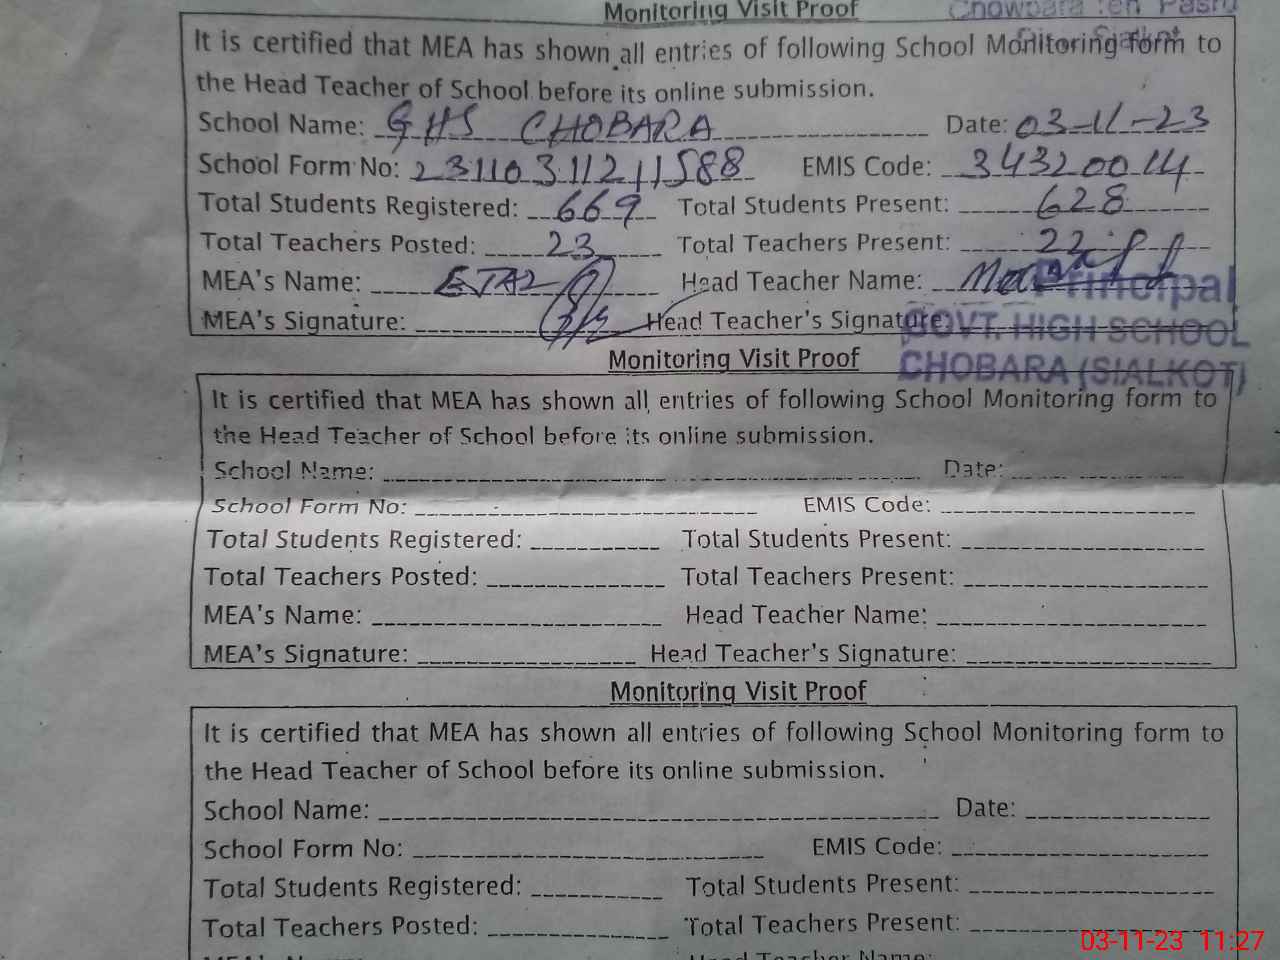 Monitoring Visit Proof
It is certified that MEA has shown all entries of following School Monitoring form to
the Head Teacher of School before its online submission.
School Name: GHS CHOBARA Date: 03-11-23
School Form No: 23110311211588 EMIS Code: 34320014
Total Students Registered: 669 Total Students Present: 628
Total Teachers Posted: 23 Total Teachers Present: 22
MEA's Name: Head Teacher Name:
MEA's Signature: Head Teacher's Signature
Principal
GOVT. HIGH SCHOOL
CHOBARA (SIALKOT)
Monitoring Visit Proof
It is certified that MEA has shown all entries of following School Monitoring form to
the Head Teacher of School before its online submission.
School Name: Date:
School Form No: EMIS Code:
Total Students Registered: Total Students Present:
Total Teachers Posted: Total Teachers Present:
MEA's Name: Head Teacher Name:
MEA's Signature: Head Teacher's Signature:
Monitoring Visit Proof
It is certified that MEA has shown all entries of following School Monitoring form to
the Head Teacher of School before its online submission.
School Name: Date:
School Form No: EMIS Code:
Total Students Registered: Total Students Present:
Total Teachers Posted: Total Teachers Present:
03-11-23 11:27